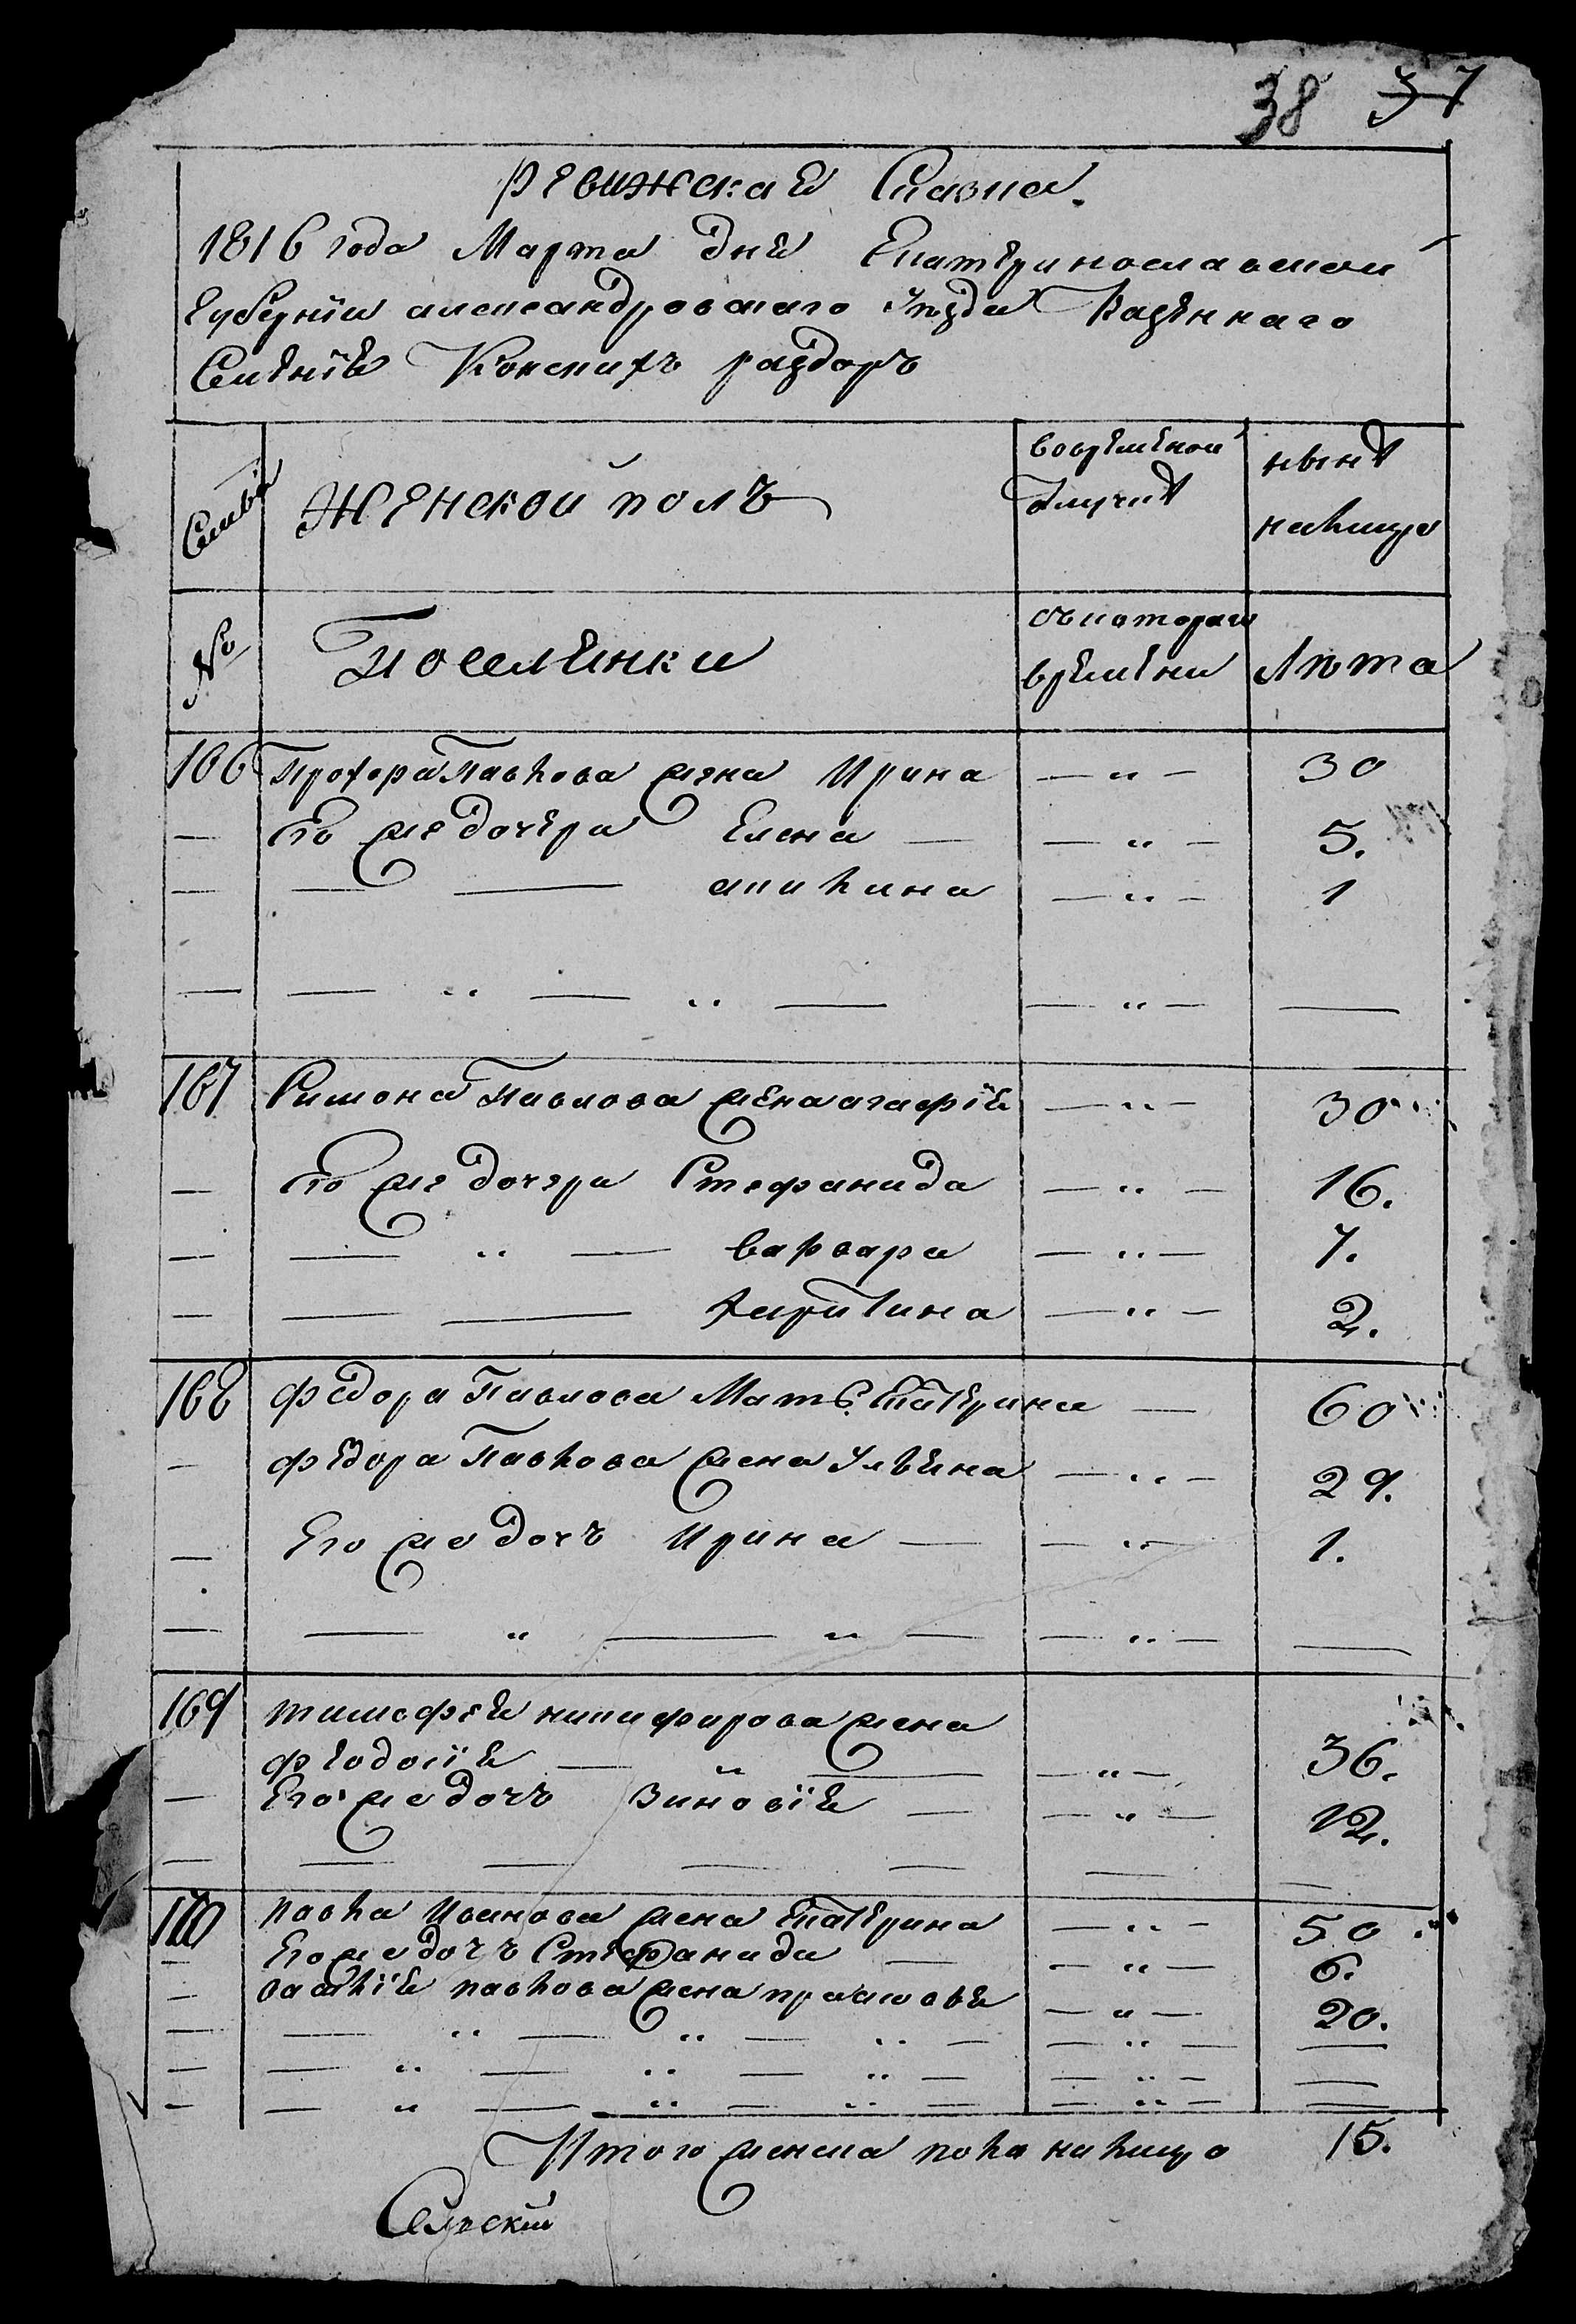 38 37
Ревижская Сказка.
1816 года Марта дня Екатеринославской
Губернии александровскаго уезда Казеннаго
Селения Конских раздоръ
Семьи
Женской полъ
вовременой
отлучке
ныне
налицо
№
Поселянки
съ котораго
времени
Лета
166 Прохора Павлова жена Ирина — " — 30
— его же дочери Елена — — " — 5.
— — — акилина — " — 1
— — " — " — — " — —
167 Симона Павлова жена агафия — " — 30
— его же дочери Стефанида — " — 16.
— — " — варвара — " — 7.
— — — харитина — " — 2.
168 федора Павлова Мать Екатерина — 60
— федора Павлова жена Ульяна — " — 29.
— Его же дочъ Ирина — — " — 1.
— — " — " — — " — —
169 тимофея никифорова жена
феодосия — " — — " — 36.
— Его же дочъ Зиновия — — " — 12.
— — — — — — —
170 павла Иванова жена Екатерина — " — 50
— Его же дочъ Стефанида — — " — 6.
— василия павлова жена прасковья — " — 20.
— — " — " — " — — " — —
— — " — " — " — — " — —
— — " — " — " — — " — —
Итого женска пола налицо 15.
Селский